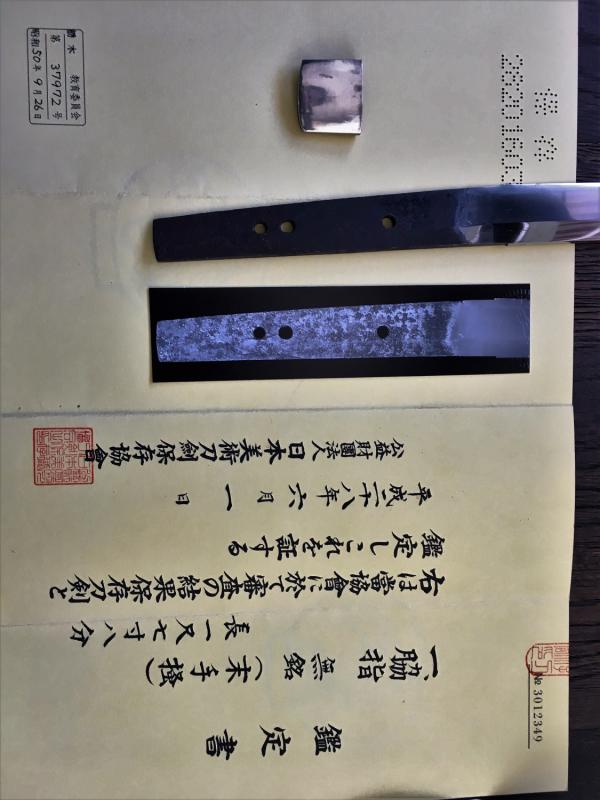 鑑定書
№ 3012349
一、脇指 無銘(末手掻)
長 一尺七寸八分
右は當協會に於て審査の結果保存刀剣と
鑑定しこれを証する
平成二十八年 六月 一日
公益財團法人日本美術刀劍保存協會
栃木 教育委員会
第 37972 号
昭和50年9月26日